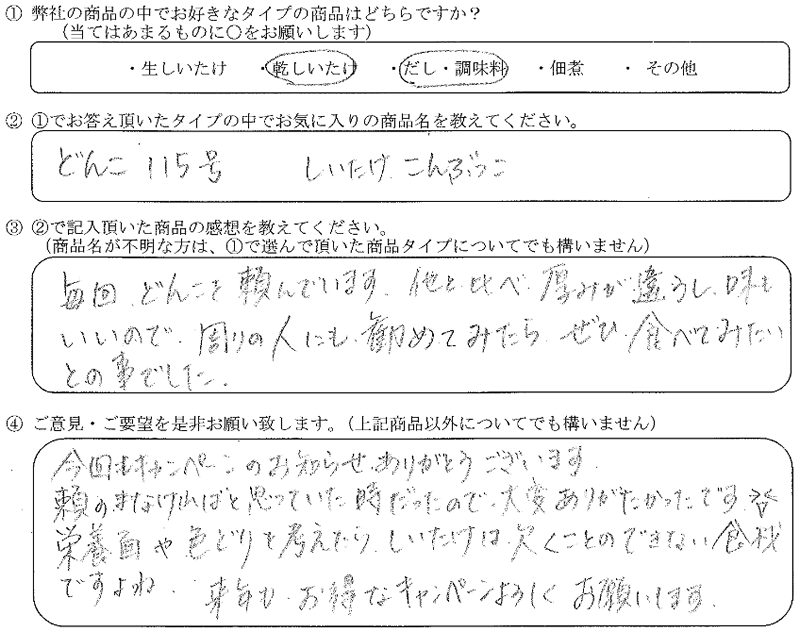 ① 弊社の商品の中でお好きなタイプの商品はどちらですか？
（当てはあまるものに〇をお願いします）
・生しいたけ ・乾しいたけ ・だし・調味料 ・佃煮 ・ その他
② ①でお答え頂いたタイプの中でお気に入りの商品名を教えてください。
どんこ 115号 しいたけ こんぶっこ
③ ②で記入頂いた商品の感想を教えてください。
（商品名が不明な方は、①で選んで頂いた商品タイプについてでも構いません）
毎回、どんこを頼んでいます。他と比べ、厚みが違うし、味も
いいので、周りの人にも、勧めてみたら、ぜひ、食べてみたい
との事でした。
④ ご意見・ご要望を是非お願い致します。（上記商品以外についてでも構いません）
今回もキャンペーンのお知らせ、ありがとうございます。
頼のまなければと思っていた時だったので、大変ありがたかったです。
栄養面や色どりを考えたら、しいたけは、欠くことのできない食材
ですよね。 来年も、お得なキャンペーンよろしくお願いします。